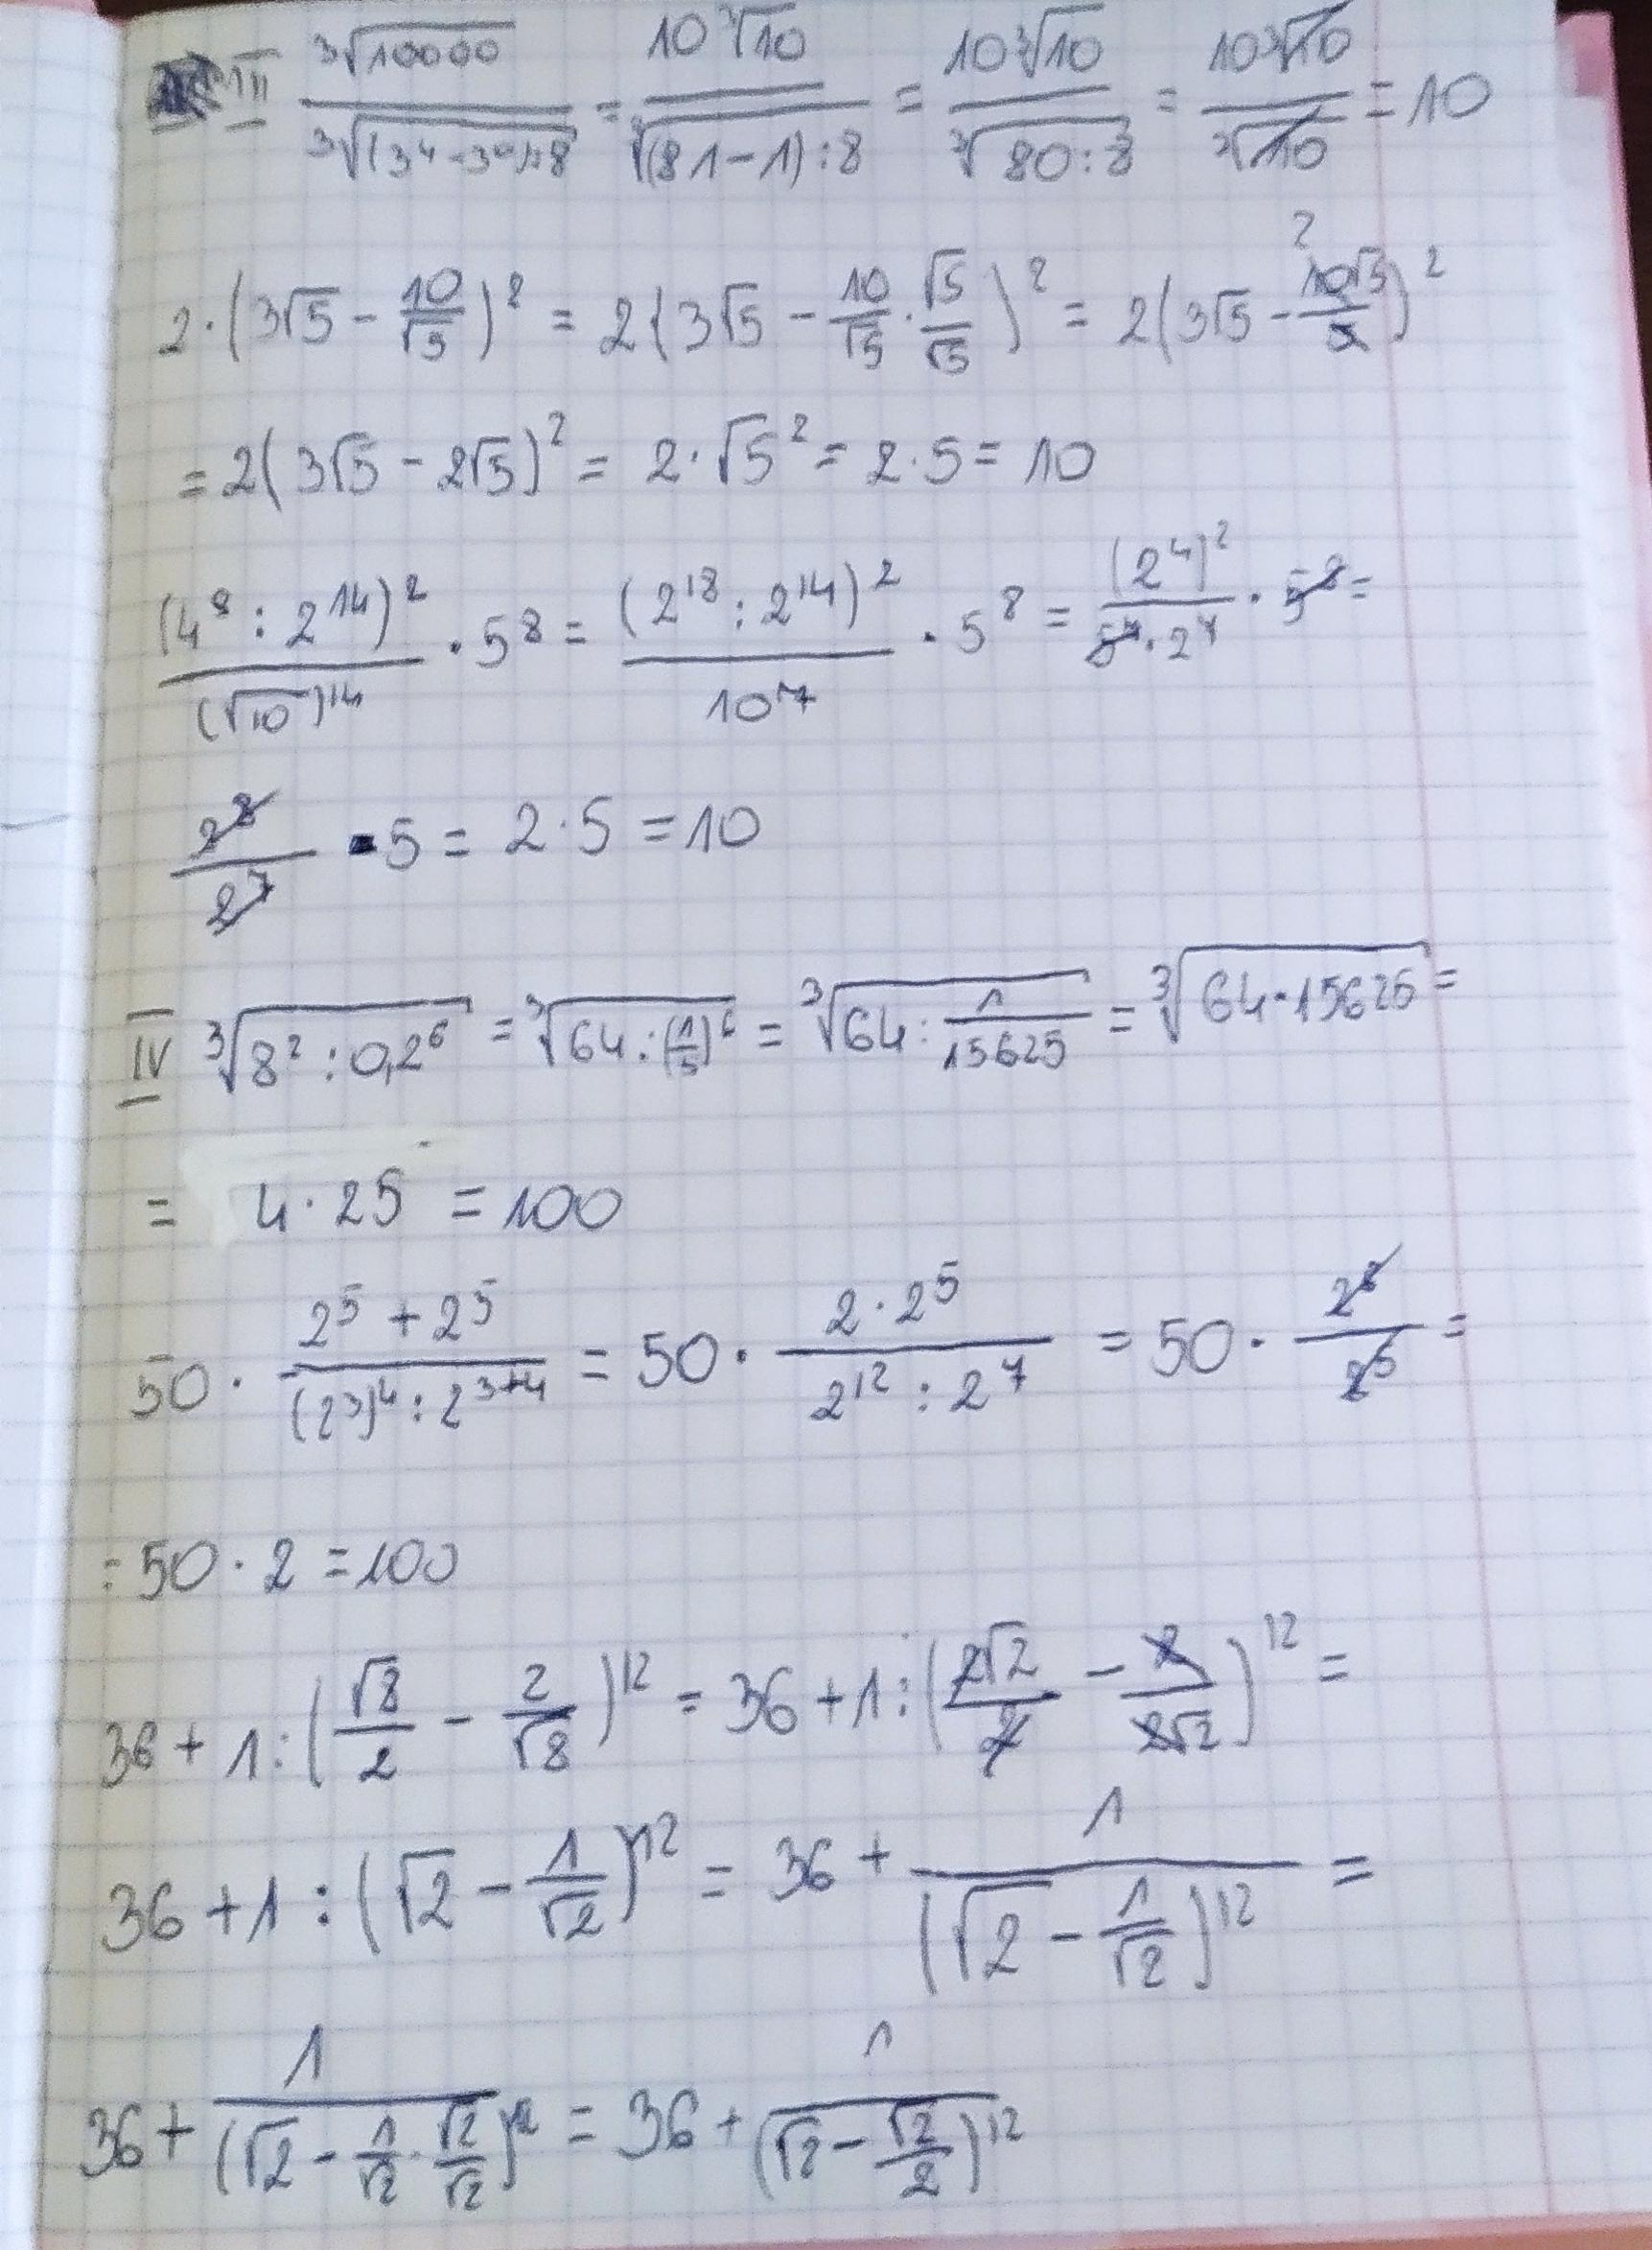 III ∛10000 / ∛((3⁴-3⁰):8) = 10∛10 / ∛((81-1):8) = 10∛10 / ∛(80:8) = 10∛10 / ∛10 = 10
2·(3√5 - 10/√5)² = 2(3√5 - 10/√5 · √5/√5)² = 2(3√5 - 10√5/5)²
= 2(3√5 - 2√5)² = 2·√5² = 2·5 = 10
(4⁹ : 2¹⁴)² / (√10)¹⁴ · 5⁸ = (2¹⁸ : 2¹⁴)² / 10⁷ · 5⁸ = (2⁴)² / (5⁷·2⁷) · 5⁸ =
2⁸/2⁷ · 5 = 2·5 = 10
IV ∛(8² : 0,2⁶) = ∛(64 : (1/5)⁶) = ∛(64 : 1/15625) = ∛(64·15625) =
= 4·25 = 100
50 · (2⁵ + 2⁵) / ((2³)⁴ : 2³⁺⁴) = 50 · (2·2⁵) / (2¹² : 2⁷) = 50 · 2⁶/2⁵ =
= 50·2 = 100
36 + 1 : (√8/2 - 2/√8)¹² = 36 + 1 : (2√2/2 - 2/2√2)¹² =
36 + 1 : (√2 - 1/√2)¹² = 36 + 1/(√2 - 1/√2)¹² =
36 + 1/(√2 - 1/√2 · √2/√2)¹² = 36 + 1/(√2 - √2/2)¹²